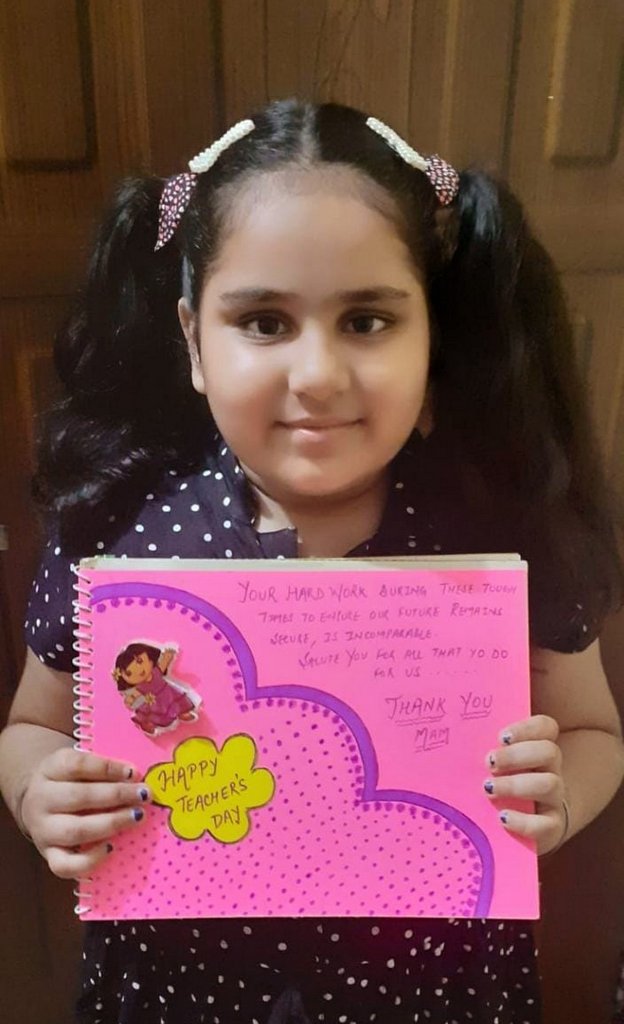 YOUR HARD WORK DURING THESE TOUGH
TIMES TO ENSURE OUR FUTURE REMAINS
SECURE, IS INCOMPARABLE.
SALUTE YOU FOR ALL THAT YO DO
FOR US ......
THANK YOU
MAM
HAPPY
TEACHER'S
DAY